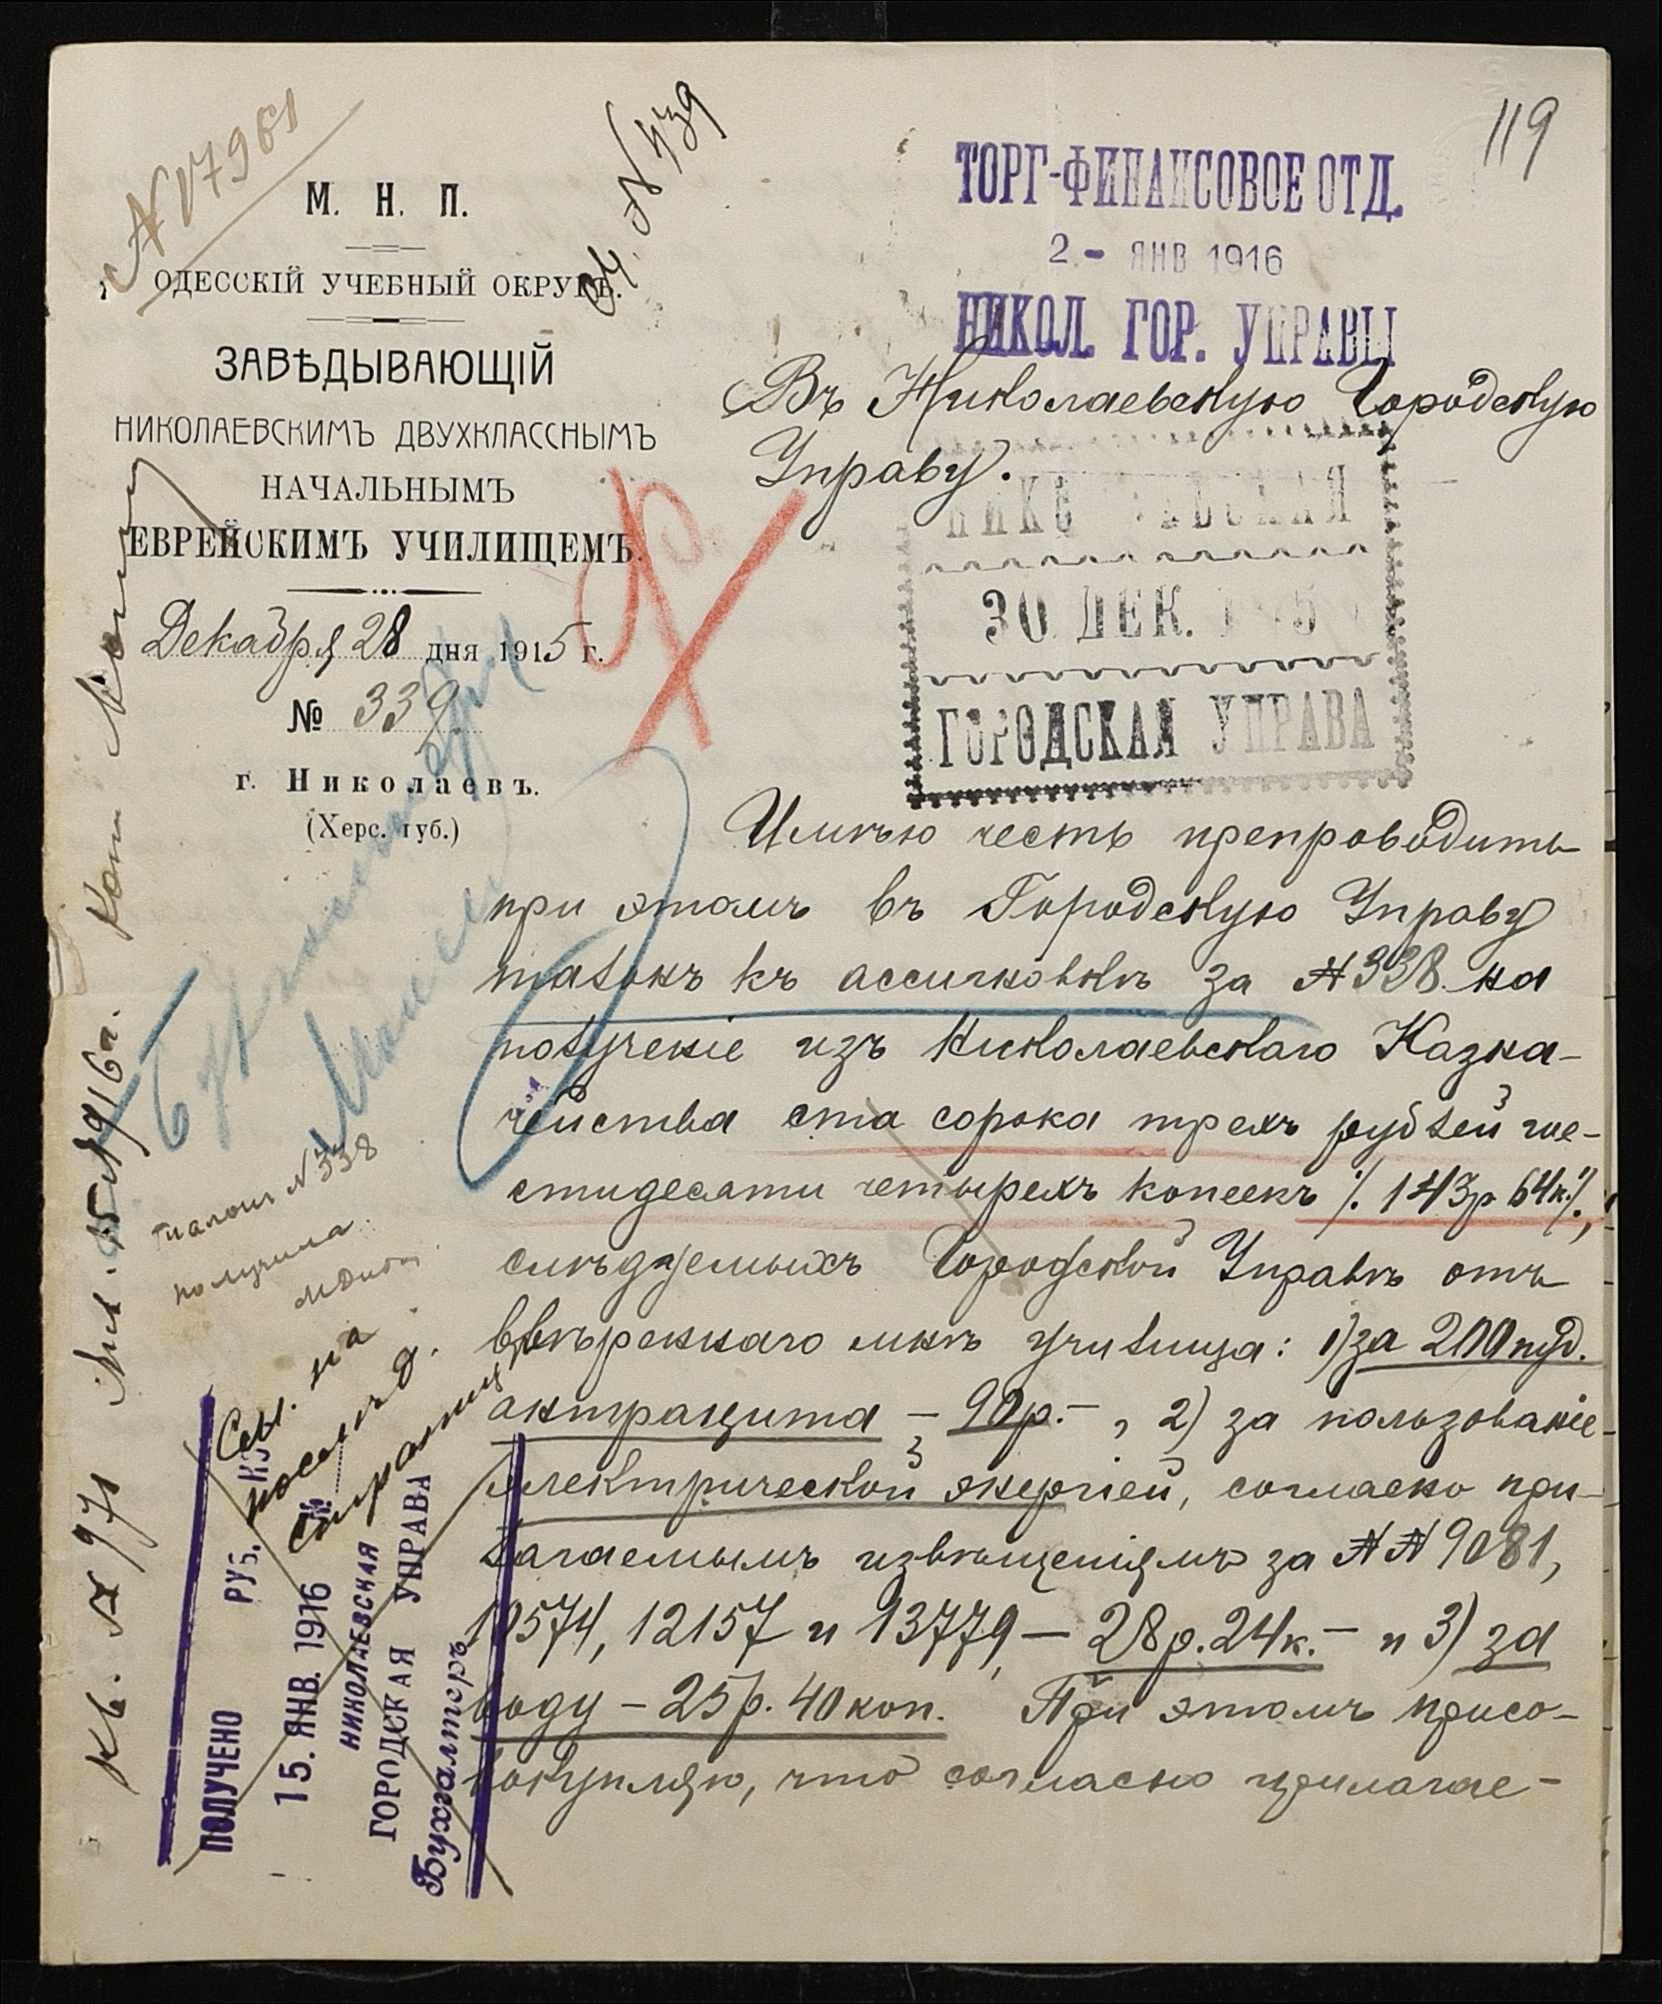 119
№ 17961
№ 439
М. Н. П.
ОДЕССКІЙ УЧЕБНЫЙ ОКРУГЪ.
ЗАВѢДЫВАЮЩІЙ
НИКОЛАЕВСКИМЪ ДВУХКЛАССНЫМЪ
НАЧАЛЬНЫМЪ
ЕВРЕЙСКИМЪ УЧИЛИЩЕМЪ.
Декабря 28 дня 1915 г.
№ 339
г. Николаевъ.
(Херс. губ.)
ТОРГ-ФИНАНСОВОЕ ОТД.
2 - ЯНВ 1916
НИКОЛ. ГОР. УПРАВЫ
Въ Николаевскую Городскую
Управу.
30 ДЕК.
ГОРОДСКАЯ УПРАВА
Имѣю честь препроводить
при этомъ въ Городскую Управу
талонъ къ ассигновкѣ за № 338 на
полученіе изъ Николаевскаго Казна-
чейства ста сорока трехъ рублей ше-
стидесяти четырехъ копеекъ /. 143р 64к./.,
слѣдуемыхъ Городской Управѣ отъ
ввѣреннаго мнѣ училища: 1) за 200 пуд.
антрацита – 90р. –, 2) за пользованіе
электрической энергіей, согласно при-
лагаемымъ извѣщеніямъ за №№ 9081,
10574, 12157 и 13779, – 28р. 24к. – и 3) за
воду – 25р. 40коп. При этомъ присо-
вокупляю, что согласно прилагае-
Талонъ № 338
получила
См. на
послѣд.
страницѣ
ПОЛУЧЕНО РУБ. К.
15. ЯНВ. 1916 №
НИКОЛАЕВСКАЯ
ГОРОДСКАЯ УПРАВА
Бухгалтеръ
Кв. № 971 15 1916 г.